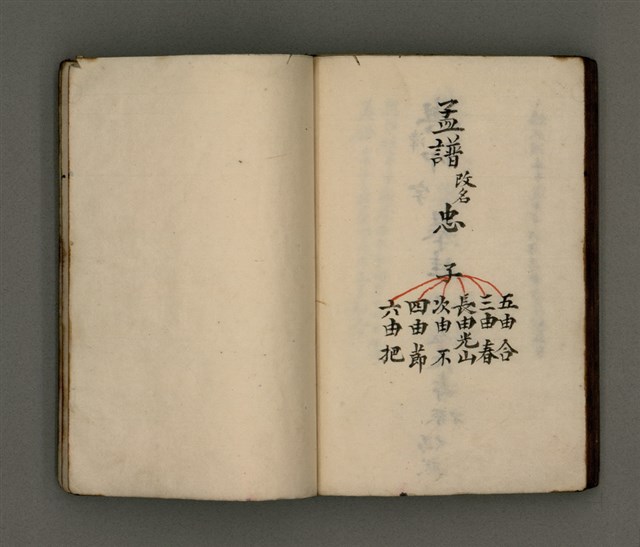 孟譜改名忠
子
五由合
三由春
長由光山
次由不
四由節
六由把